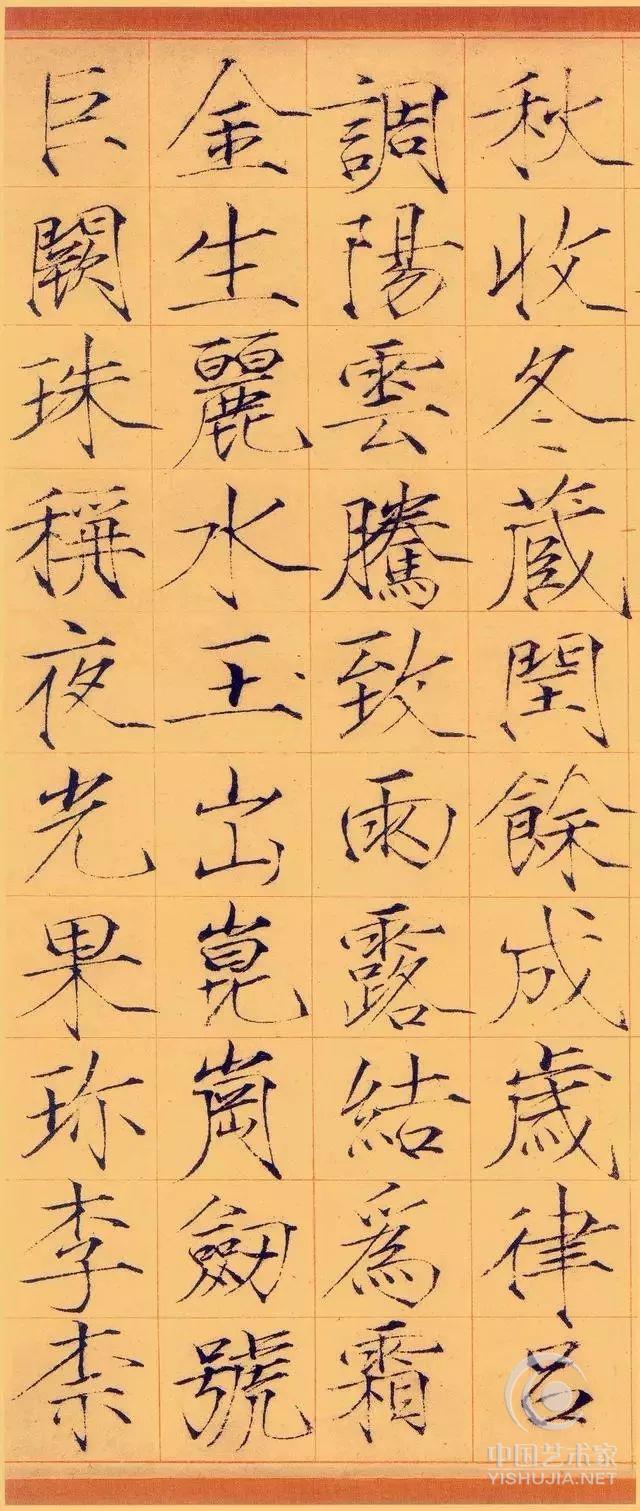 秋收冬蔵閏餘成歲律呂
調陽雲騰致雨露結爲霜
金生麗水玉出崑崗劒號
巨闕珠稱夜光果珎李柰
中国艺术家
YISHUJIA.NET